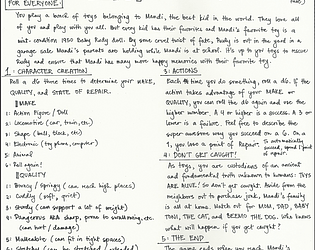 FOR EVERYONE.
You play a bunch of toys belonging to Mandi, the best kid in the world. They love all
of you and play with you all. But every kid has their favorites and Mandi's favorite toy is a
mint condition 1950 Baby Rudy doll. By some cruel twist of fate, Rudy is set in the yard in a
garage sale Mandi's parents are holding while Mandi is at school. It's up to you toys to rescue
Rudy and ensure that Mandi has many more happy memories with their favorite toy.
1: CHARACTER CREATION
Roll a d6 three times to determine your MAKE,
QUALITY, and STATE OF REPAIR.
MAKE
1: Action Figure / Doll
2: Locomotive (car, train, etc)
3: Shape (ball, block, etc)
4: Electronic (toy phone, computer)
5: Animal
6: Roll again!
QUALITY
1: Bouncy / Springy (can reach high places)
2: Cuddly (soft, grief)
3: Sturdy (can support a lot of weight)
4: Dangerous AKA sharp, prone to swallowing, etc
(can hurt / damage)
5: Malleable (can fit in tight spaces)
3: ACTIONS
Each time you do something, roll a d6. If the
action takes advantage of your MAKE or
QUALITY, you can roll the d6 again and use the
higher number. A 4 or higher is a success. A 3 or
lower is a failure. Feel free to describe the
super-awesome way you succeed on a 6. On a
1, you lose a point of Repair.
4: DON'T GET CAUGHT!
As toys, you are custodians of an ancient
and fundamental truth unknown to humans: TOYS
ARE ALIVE. So don't get caught. Aside from the
neighbors out to purchase junk, Mandi's family
is all at home. Watch out for MOM, DAD, BABY
TONI, THE CAT, and BEEMO THE DOG. Who knows
what will happen if you get caught?
5: THE END
The game ends when you reach Mandi's